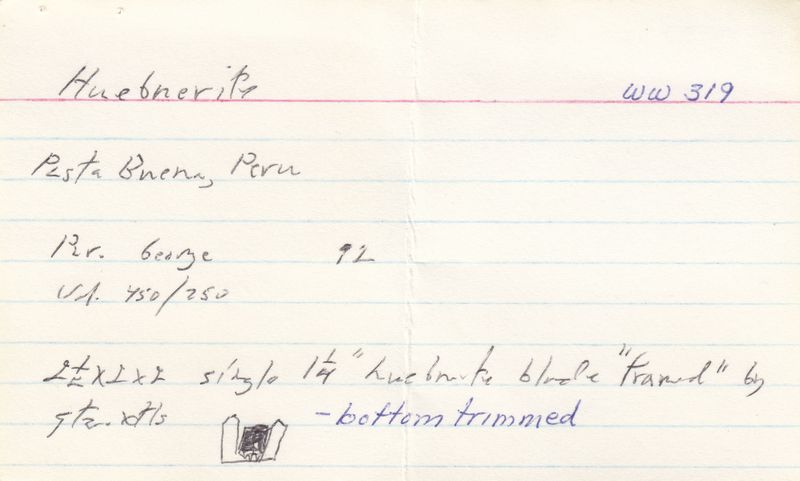 Huebnerite WW 319
Pasta Buena, Peru
Pur. George 92
Vd. 450/250
2½x2x2 single 1¼" huebnerite blade "framed" by
qtz. xtls - bottom trimmed